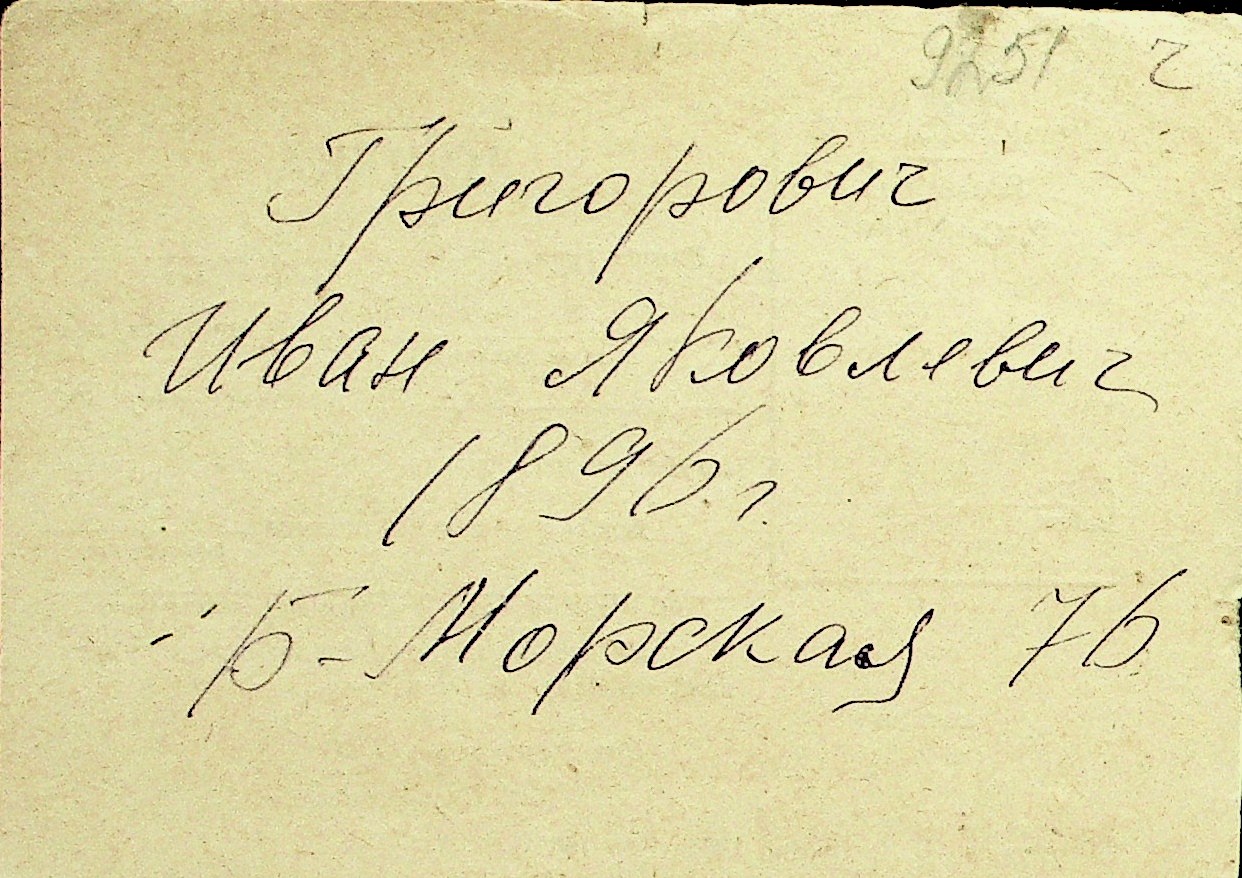 9251 г
Григорович
Иван Яковлевич
1896 г.
Б-Морская 76